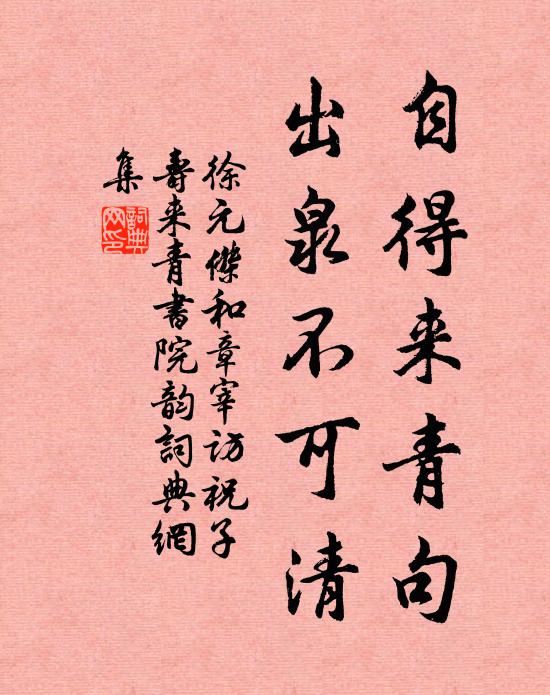 自得来青句
出泉不可清
徐元傑和章宰访祝子
壽来青書院韵詞典網
集
詞典网印